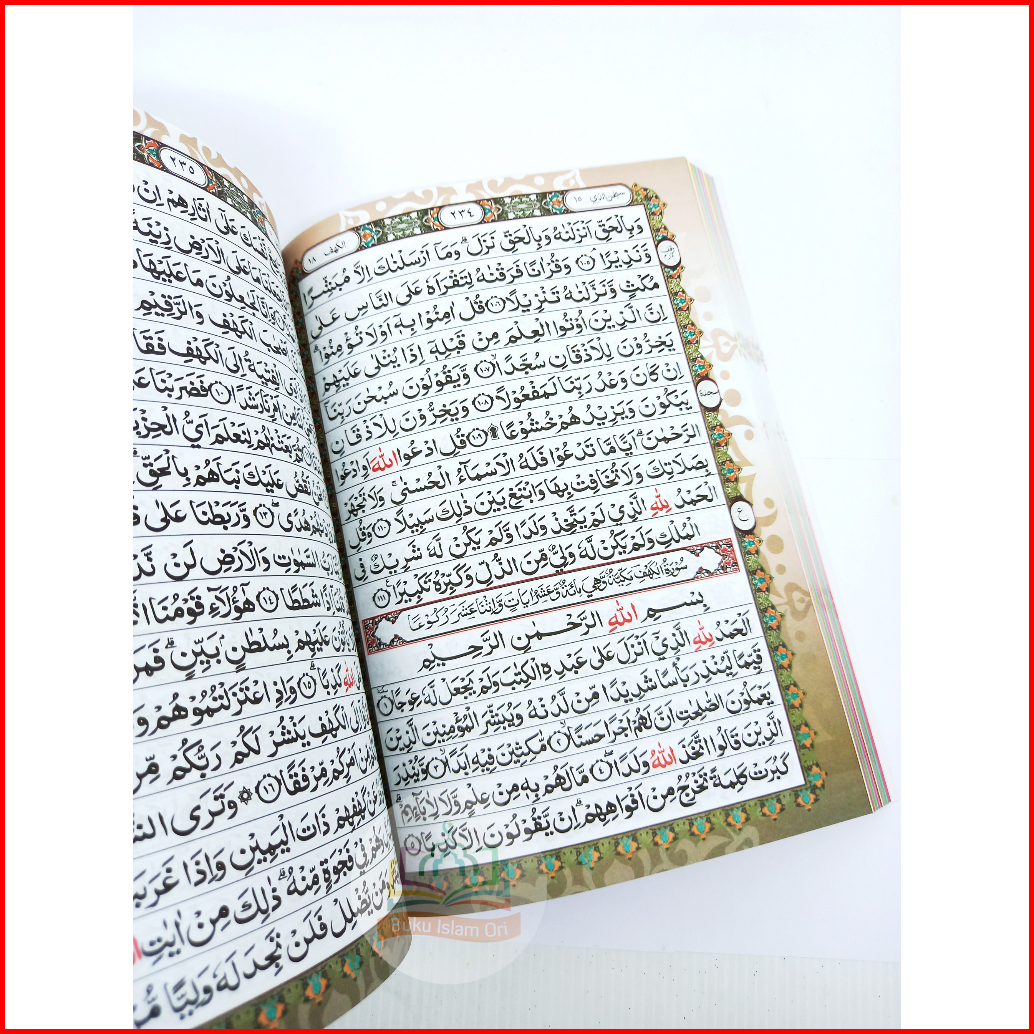 سبحن الذي ١٥
٢٣٤
الكهف ١٨
وَبِالْحَقِّ اَنْزَلْنٰهُ وَبِالْحَقِّ نَزَلَ ۗ وَمَآ اَرْسَلْنٰكَ اِلَّا مُبَشِّرًا
وَّنَذِيْرًا ۘ ١٠٥ وَقُرْاٰنًا فَرَقْنٰهُ لِتَقْرَاَهٗ عَلَى النَّاسِ عَلٰى
مُكْثٍ وَّنَزَّلْنٰهُ تَنْزِيْلًا ١٠٦ قُلْ اٰمِنُوْا بِهٖٓ اَوْ لَا تُؤْمِنُوْا ۗ
اِنَّ الَّذِيْنَ اُوْتُوا الْعِلْمَ مِنْ قَبْلِهٖٓ اِذَا يُتْلٰى عَلَيْهِمْ
يَخِرُّوْنَ لِلْاَذْقَانِ سُجَّدًا ۙ ١٠٧ وَّيَقُوْلُوْنَ سُبْحٰنَ رَبِّنَآ
اِنْ كَانَ وَعْدُ رَبِّنَا لَمَفْعُوْلًا ١٠٨ وَيَخِرُّوْنَ لِلْاَذْقَانِ
يَبْكُوْنَ وَيَزِيْدُهُمْ خُشُوْعًا ۩ ١٠٩ قُلِ ادْعُوا اللّٰهَ اَوِ ادْعُوا
الرَّحْمٰنَ ۗ اَيًّا مَّا تَدْعُوْا فَلَهُ الْاَسْمَآءُ الْحُسْنٰى ۚ وَلَا تَجْهَرْ
بِصَلَاتِكَ وَلَا تُخَافِتْ بِهَا وَابْتَغِ بَيْنَ ذٰلِكَ سَبِيْلًا ١١٠ وَقُلِ
الْحَمْدُ لِلّٰهِ الَّذِيْ لَمْ يَتَّخِذْ وَلَدًا وَّلَمْ يَكُنْ لَّهٗ شَرِيْكٌ فِى
الْمُلْكِ وَلَمْ يَكُنْ لَّهٗ وَلِيٌّ مِّنَ الذُّلِّ وَكَبِّرْهُ تَكْبِيْرًا ١١١
سُوْرَةُ الْكَهْفِ مَكِّيَّةٌ وَّهِيَ مِائَةٌ وَّعَشْرُ اٰيَاتٍ وَّاثْنَتَا عَشَرَ رُكُوْعًا
بِسْمِ اللّٰهِ الرَّحْمٰنِ الرَّحِيْمِ
اَلْحَمْدُ لِلّٰهِ الَّذِيْٓ اَنْزَلَ عَلٰى عَبْدِهِ الْكِتٰبَ وَلَمْ يَجْعَلْ لَّهٗ عِوَجًا ١
قَيِّمًا لِّيُنْذِرَ بَاْسًا شَدِيْدًا مِّنْ لَّدُنْهُ وَيُبَشِّرَ الْمُؤْمِنِيْنَ الَّذِيْنَ
يَعْمَلُوْنَ الصّٰلِحٰتِ اَنَّ لَهُمْ اَجْرًا حَسَنًا ۙ ٢ مّٰكِثِيْنَ فِيْهِ اَبَدًا ۙ ٣ وَّيُنْذِرَ
الَّذِيْنَ قَالُوا اتَّخَذَ اللّٰهُ وَلَدًا ٤ مَا لَهُمْ بِهٖ مِنْ عِلْمٍ وَّلَا لِاٰبَآئِهِمْ ۗ
كَبُرَتْ كَلِمَةً تَخْرُجُ مِنْ اَفْوَاهِهِمْ ۗ اِنْ يَّقُوْلُوْنَ اِلَّا كَذِبًا ٥
سجدة
ع
٢٣٥
عَلٰٓى اٰثَارِهِمْ اِنْ
مَا عَلَى الْاَرْضِ زِيْنَةً
لَجٰعِلُوْنَ مَا عَلَيْهَا
الْكَهْفِ وَالرَّقِيْمِ
الْفِتْيَةُ اِلَى الْكَهْفِ فَقَا
رَشَدًا ١٠ فَضَرَبْنَا
بَعَثْنٰهُمْ لِنَعْلَمَ اَيُّ الْحِزْ
نَقُصُّ عَلَيْكَ نَبَاَهُمْ بِالْحَقِّ ۗ
هُدًى ۖ ١٣ وَّرَبَطْنَا عَلٰى
السَّمٰوٰتِ وَالْاَرْضِ لَنْ نَّدْ
شَطَطًا ١٤ هٰٓؤُلَآءِ قَوْمُنَا
عَلَيْهِمْ بِسُلْطٰنٍ بَيِّنٍ ۗ فَمَنْ
اللّٰهِ كَذِبًا ۗ ١٥ وَاِذِ اعْتَزَلْتُمُوْهُمْ وَ
الْكَهْفِ يَنْشُرْ لَكُمْ رَبُّكُمْ مِّنْ
مِّنْ اَمْرِكُمْ مِّرْفَقًا ١٦ ۞ وَتَرَى
كَهْفِهِمْ ذَاتَ الْيَمِيْنِ وَاِذَا غَرَبَ
فِيْ فَجْوَةٍ مِّنْهُ ۗ ذٰلِكَ مِنْ اٰيٰتِ
وَمَنْ يُّضْلِلْ فَلَنْ تَجِدَ لَهٗ وَلِيًّا
Buku Islam Ori